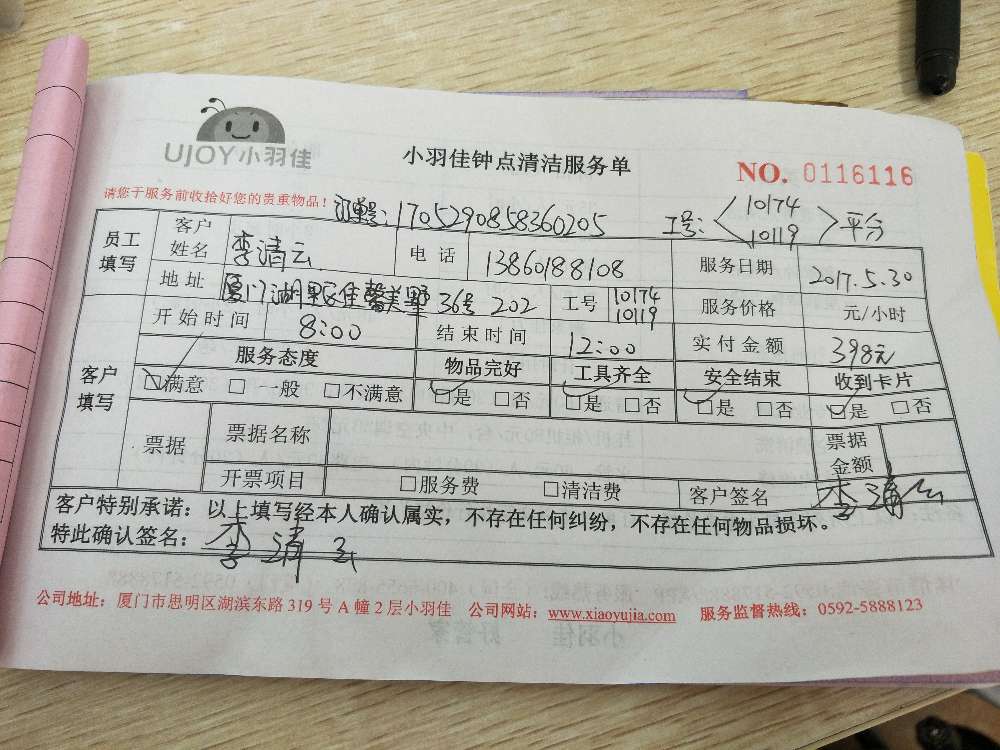 UJOY小羽佳
小羽佳钟点清洁服务单
NO. 0116116
请您于服务前收拾好您的贵重物品！ 订单号: 1705290858360205 工号: 10174 10119 平分
员工填写 客户姓名 李清云 电话 13860188108 服务日期 2017.5.30
地址 厦门湖里区佳馨美墅36号202 工号 10174 10119 服务价格 元/小时
开始时间 8:00 结束时间 12:00 实付金额 398元
客户填写 服务态度 物品完好 工具齐全 安全结束 收到卡片
☑满意 □一般 □不满意 ☑是 □否 ☑是 □否 ☑是 □否 ☑是 □否
票据 票据名称 票据金额
开票项目 □服务费 □清洁费 客户签名 李清云
客户特别承诺：以上填写经本人确认属实，不存在任何纠纷，不存在任何物品损坏。
特此确认签名： 李清云
公司地址：厦门市思明区湖滨东路 319 号 A 幢 2 层小羽佳 公司网站：www.xiaoyujia.com 服务监督热线：0592-5888123